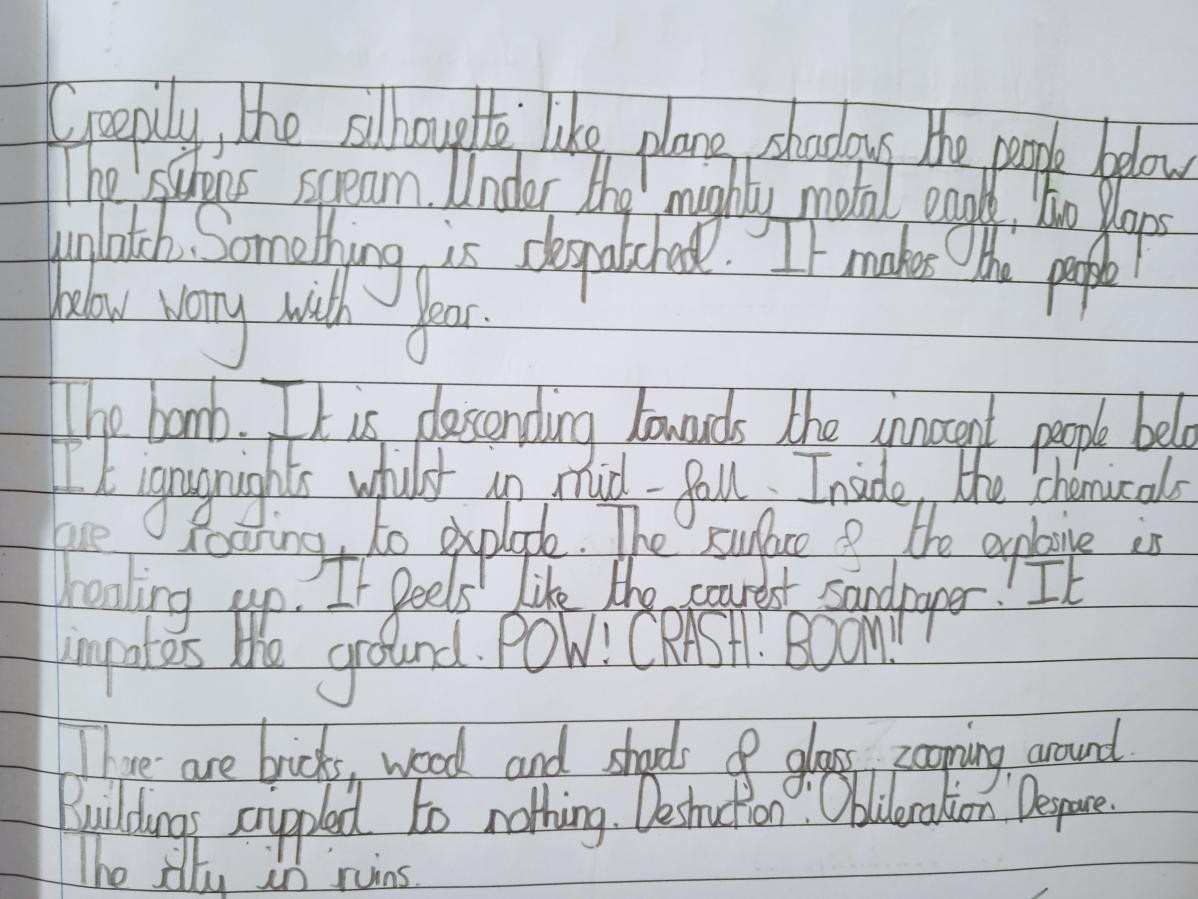 Creepily, the silhouette like plane shadows the people below
The sirens scream. Under the mighty metal eagle, two flaps
unlatch. Something is despatched. It makes the people
below worry with fear.
The bomb. It is descending towards the innocent people belo
It ignignights whilst in mid-fall. Inside, the chemicals
are roaring to explode. The surface of the explosive is
heating up. It feels like the coarest sandpaper. It
impates the ground. POW! CRASH! BOOM!!
There are bricks, wood and shards of glass zooming around.
Buildings crippled to nothing. Destruction. Obliteration. Despare.
The city in ruins.